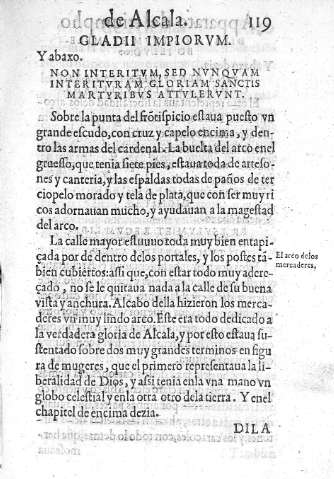 de Alcala. 119
GLADII IMPIORVM.
Y abaxo.
NON INTERITVM, SED NVNQVAM
INTERITVRAM GLORIAM SANCTIS
MARTYRIBVS ATTVLERVNT.
Sobre la punta del frõtispicio estaua puesto vn
grande escudo, con cruz y capelo encima, y den
tro las armas del cardenal. La buelta del arco en el
gruesso, que tenia siete pies, estaua toda de arteso-
nes y canteria, y las espaldas todas de paños de ter
ciopelo morado y tela de plata, que con ser muy ri
cos adornauan mucho, y ayudauan a la magestad
del arco.
La calle mayor estuuo toda muy bien entapi-
çada por de dentro delos portales, y los postes tã-
bien cubiertos: assi que, con estar todo muy adere-
çado, no se le quitaua nada a la calle de su buena
vista y anchura. Al cabo della hizieron los merca-
deres vn muy lindo arco. Este era todo dedicado a
la verdadera gloria de Alcala, y por esto estaua su-
stentado sobre dos muy grandes terminos en figu
ra de mugeres, que el primero representaua la li-
beralidad de Dios, y assi tenia enla vna mano vn
globo celestial y enla otra otro dela tierra. Y enel
chapitel de encima dezia.
El arco de los
mercaderes,
DILA